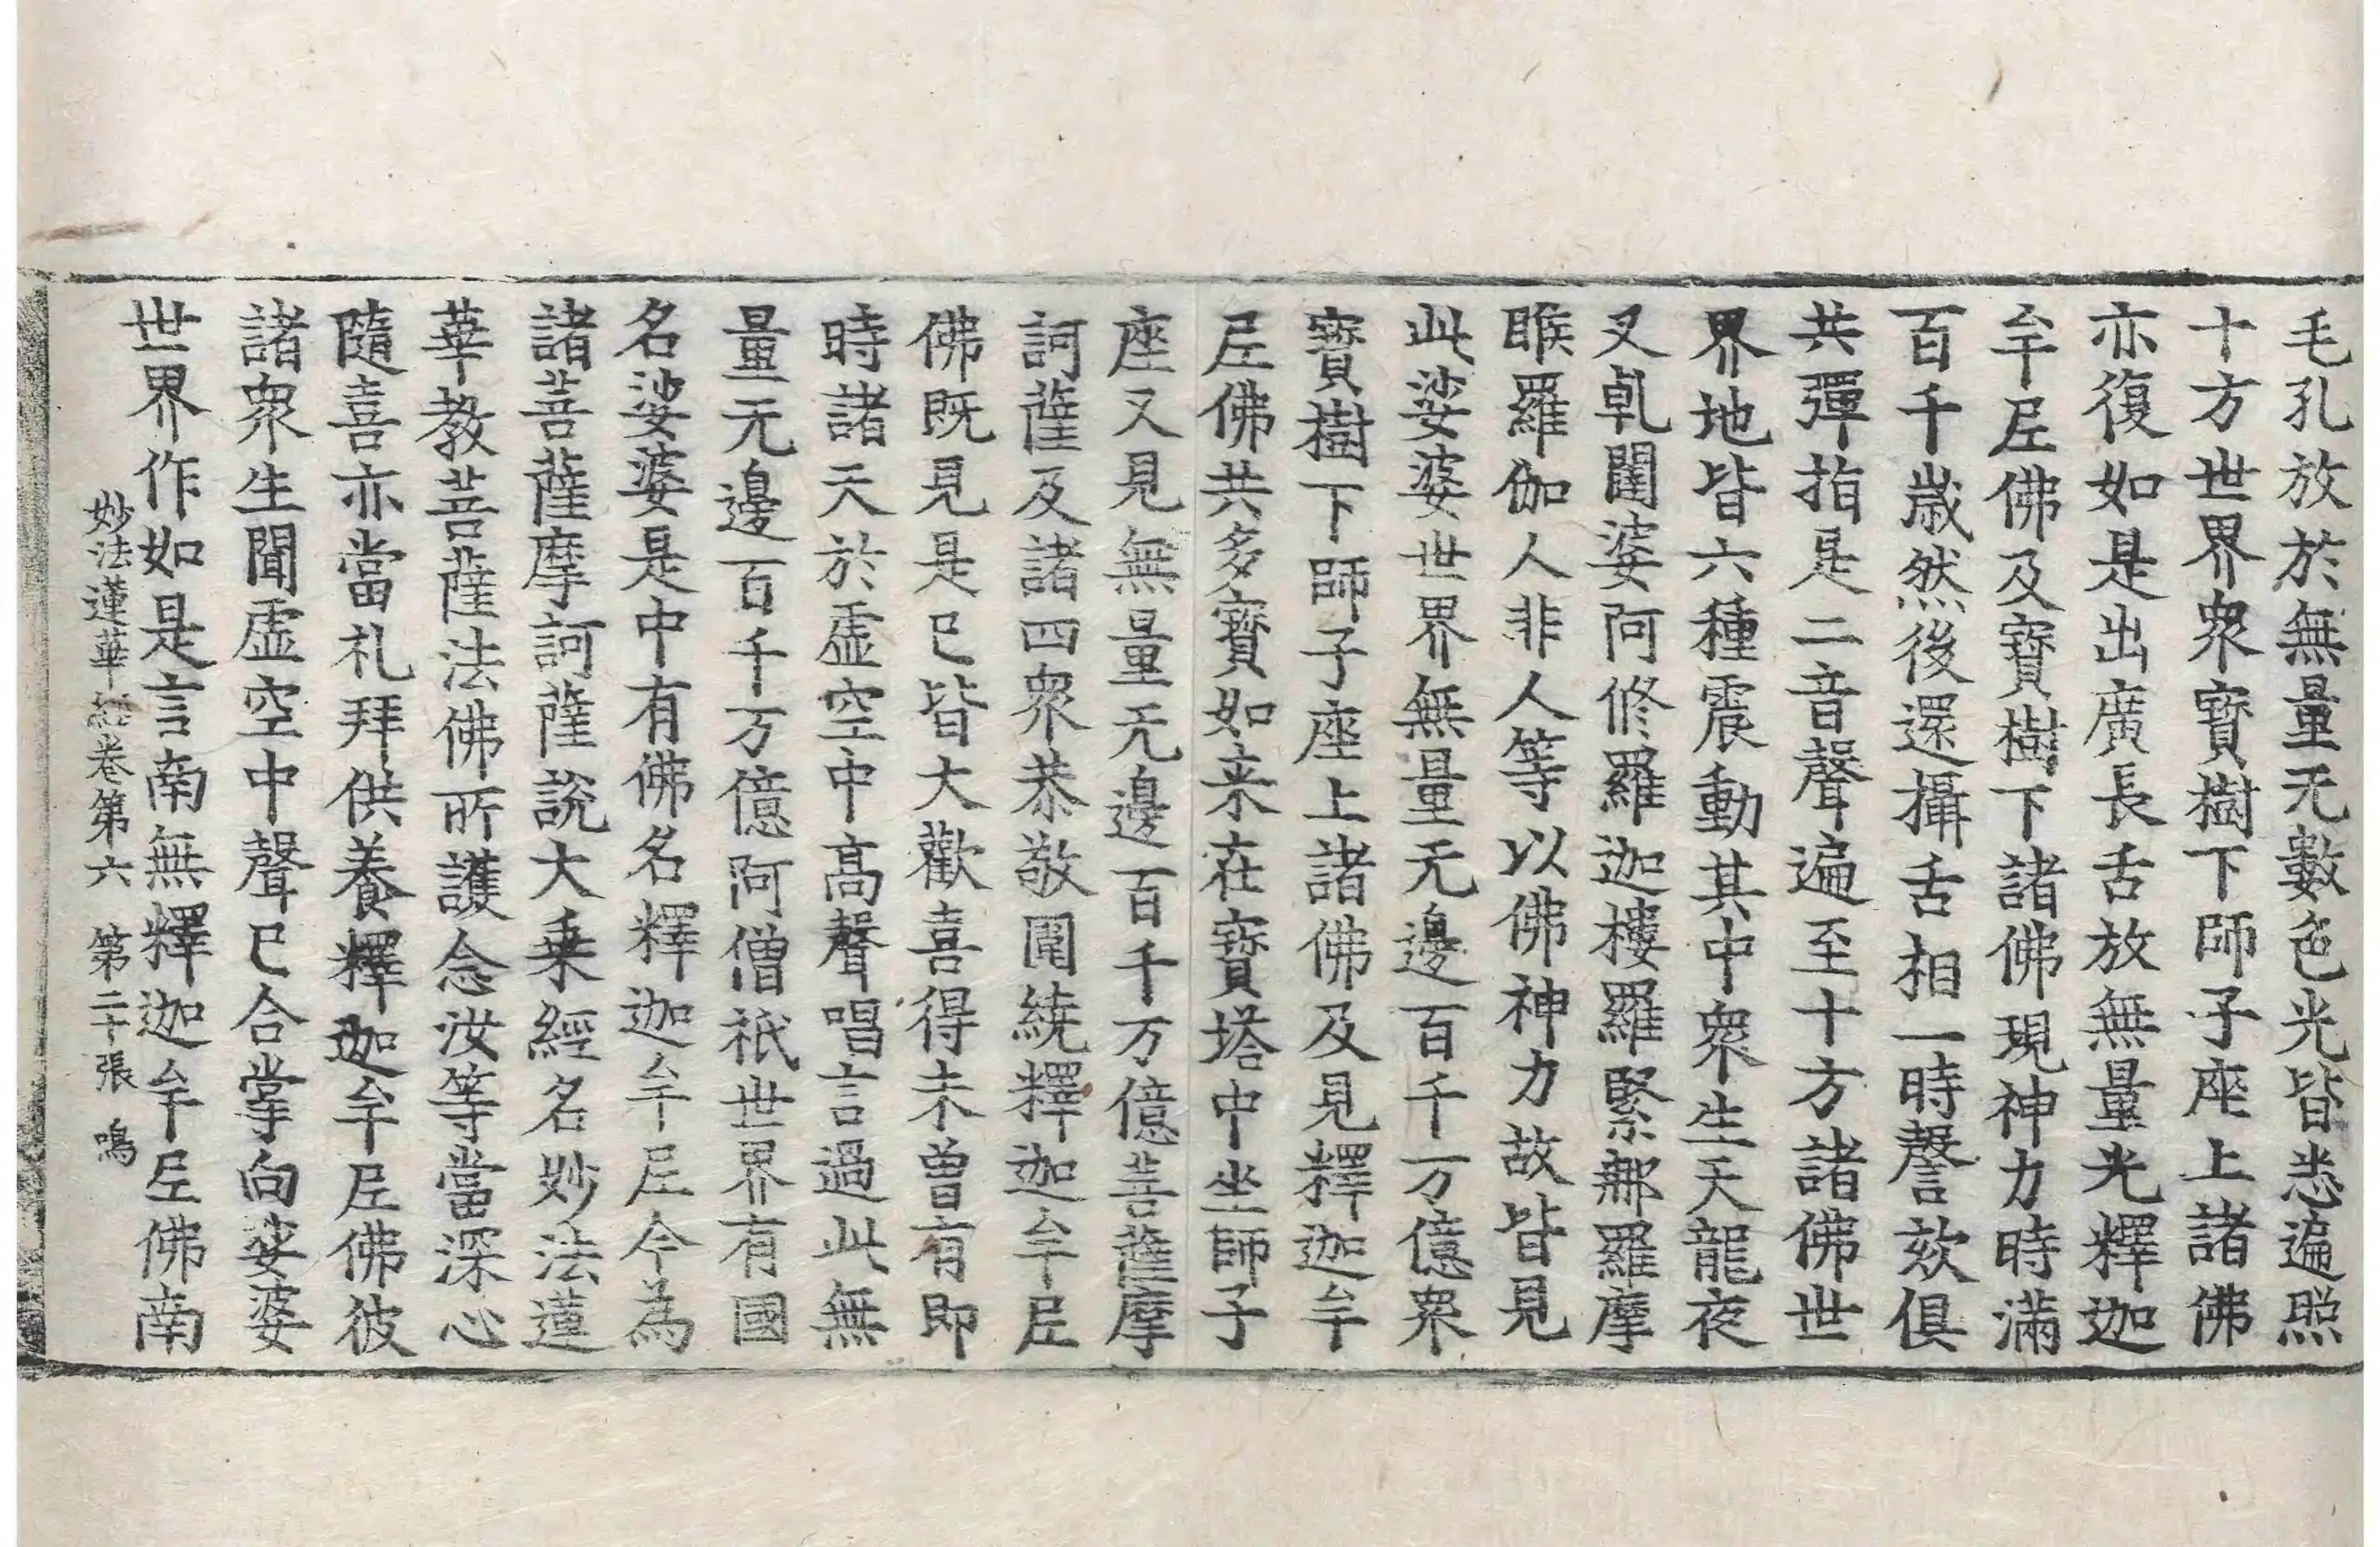 毛孔放於無量无數色光皆悉遍照
十方世界衆寶樹下師子座上諸佛
亦復如是出廣長舌放無量光釋迦
牟尼佛及寶樹下諸佛現神力時滿
百千歲然後還攝舌相一時謦欬俱
共彈指是二音聲遍至十方諸佛世
界地皆六種震動其中衆生天龍夜
叉乹闥婆阿修羅迦樓羅緊那羅摩
睺羅伽人非人等以佛神力故皆見
此娑婆世界無量无邊百千万億衆
寶樹下師子座上諸佛及見釋迦牟
尼佛共多寶如来在寶塔中坐師子
座又見無量无邊百千万億菩薩摩
訶薩及諸四衆恭敬圍繞釋迦牟尼
佛既見是已皆大歡喜得未曾有即
時諸天於虛空中高聲唱言過此無
量无邊百千万億阿僧祇世界有國
名娑婆是中有佛名釋迦牟尼今為
諸菩薩摩訶薩說大乗經名妙法蓮
華教菩薩法佛所護念汝等當深心
隨喜亦當礼拜供養釋迦牟尼佛彼
諸衆生聞虛空中聲已合掌向娑婆
世界作如是言南無釋迦牟尼佛南
妙法蓮華經卷第六 第二十張 鳴